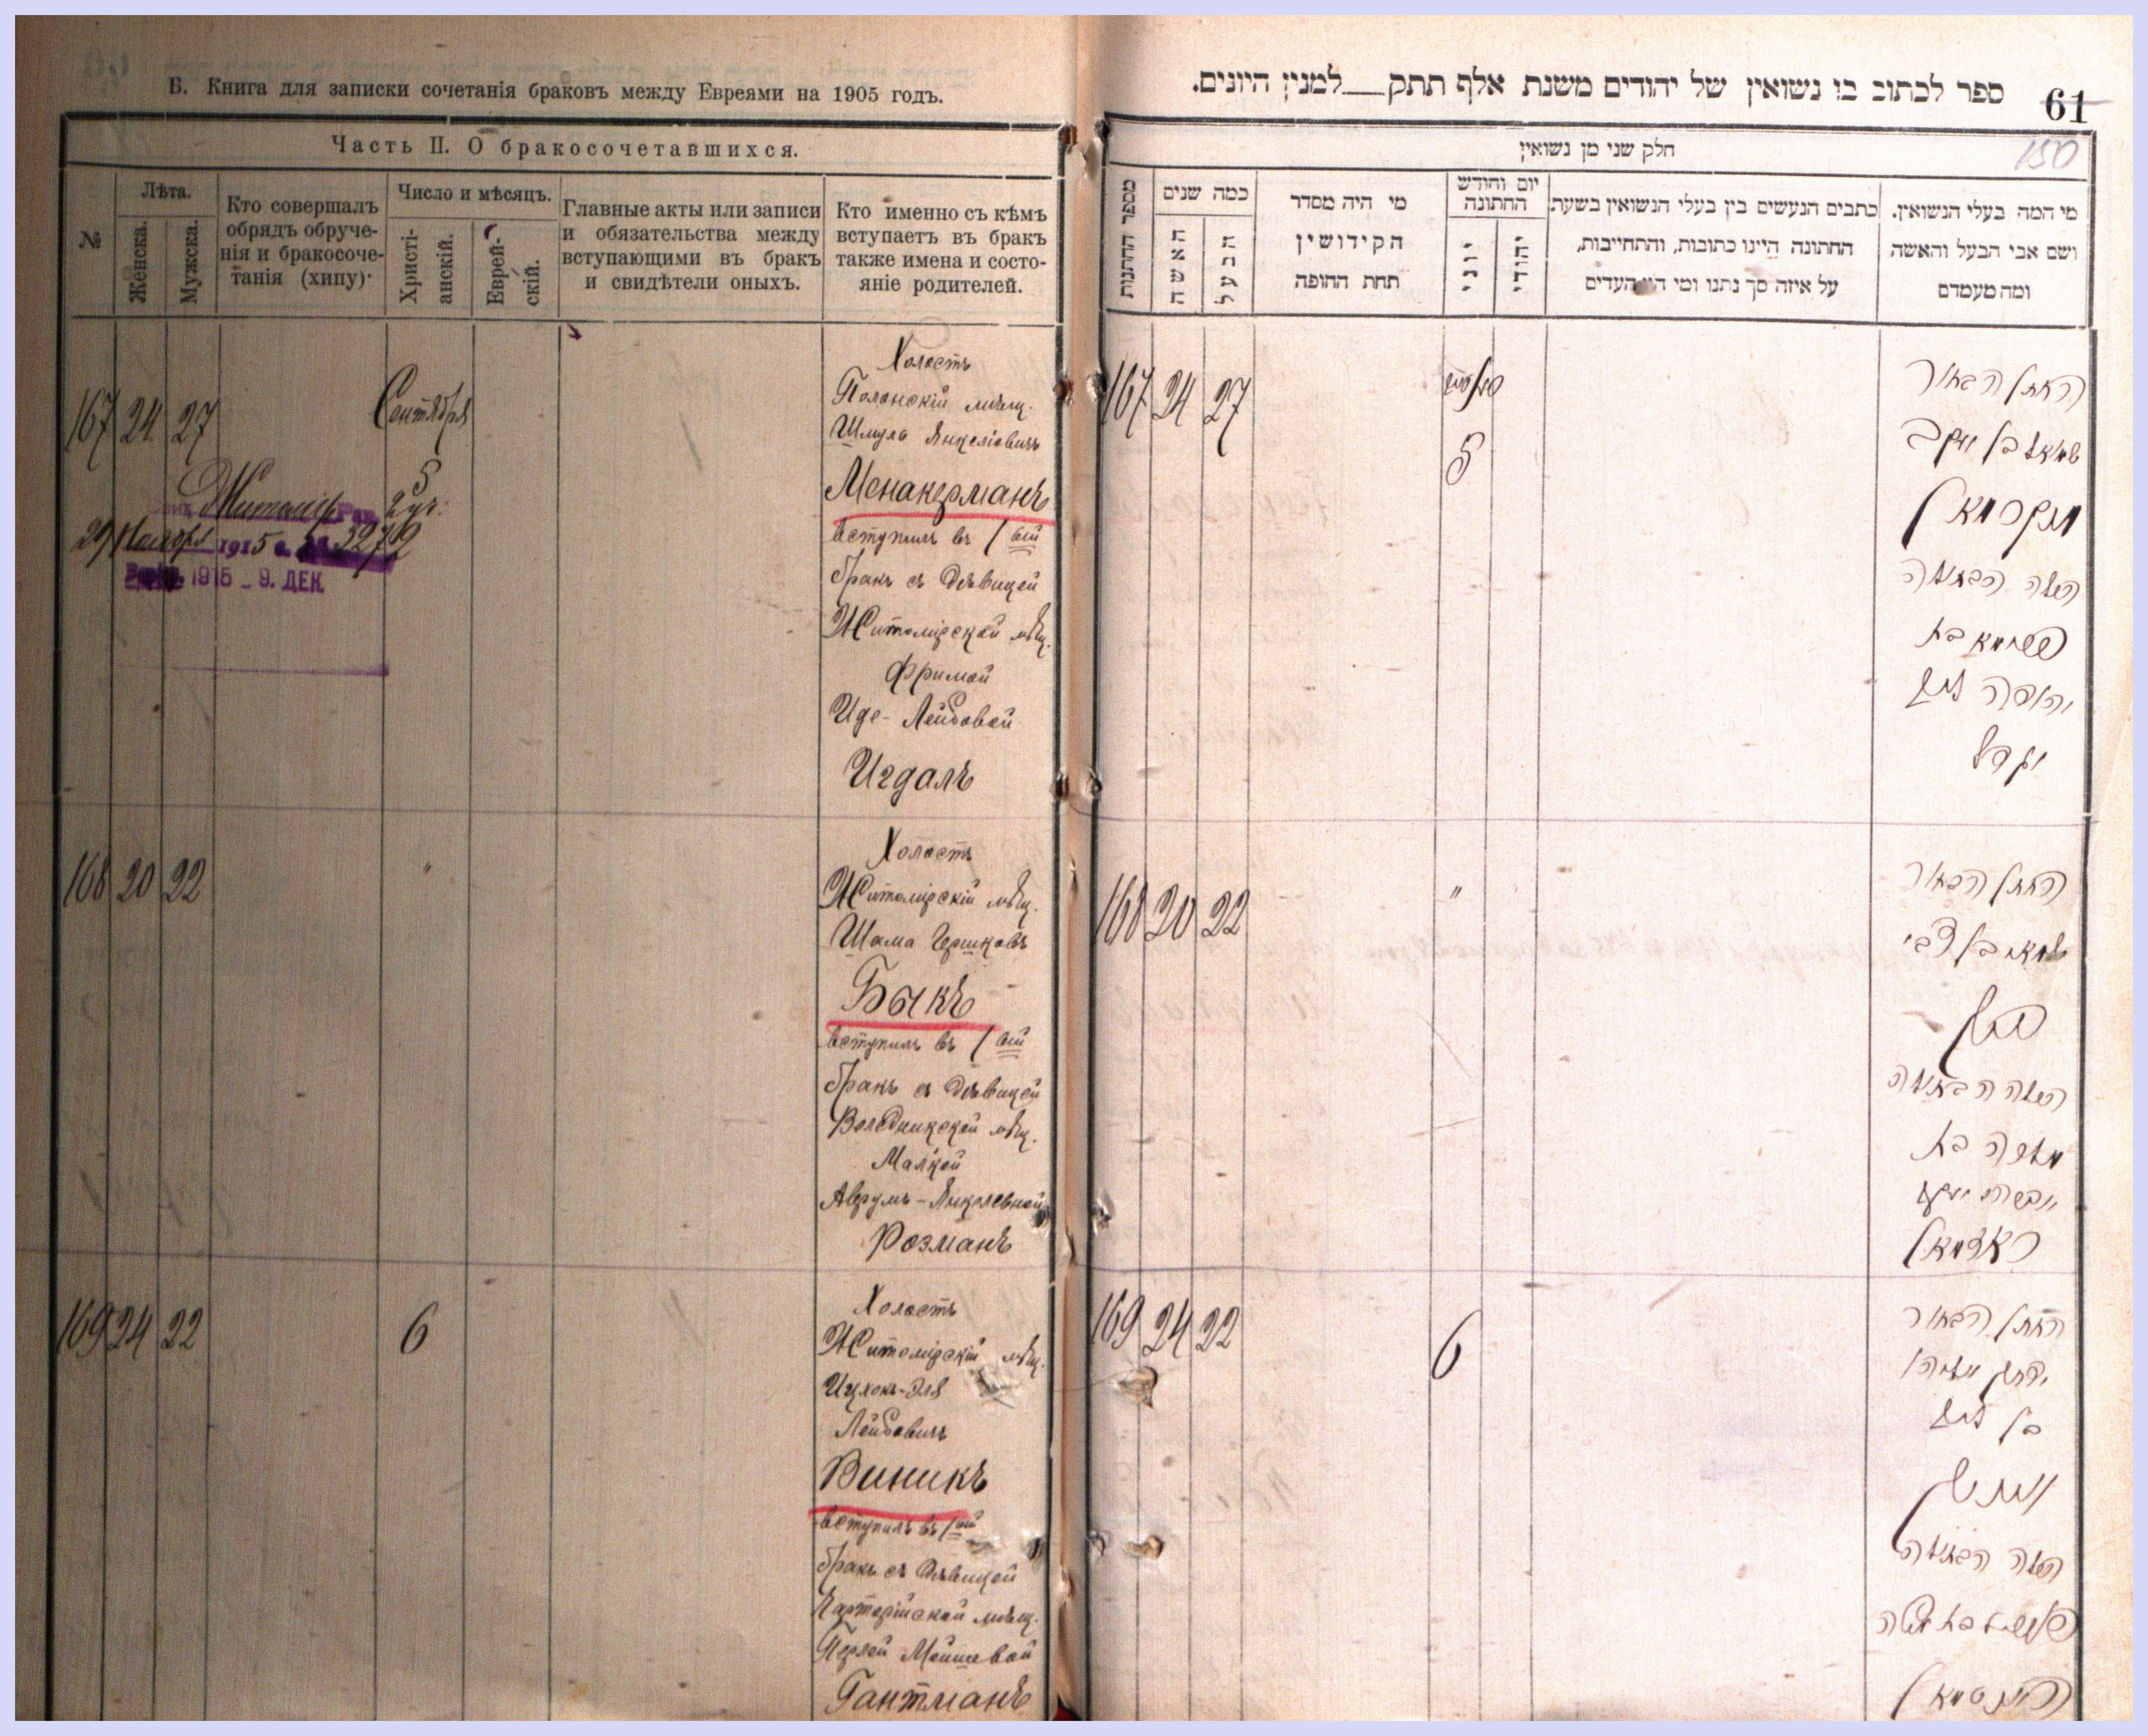 Б. Книга для записки сочетанія браковъ между Евреями на 1905 годъ.
Часть II. О бракосочетавшихся.
№
Лѣта.
Женска.
Мужска.
Кто совершалъ
обрядъ обруче-
нія и бракосоче-
танія (хипу)·
Число и мѣсяцъ.
Христі-
анскій.
Еврей-
скій.
Главные акты или записи
и обязательства между
вступающими въ бракъ
и свидѣтели оныхъ.
Кто именно съ кѣмъ
вступаетъ въ бракъ
также имена и состо-
яніе родителей.
167 24 27
Сентября
5
Житомір. Рав. 2 уч.
29 Ноября 1915 г. № 3272
1915 - 9. ДЕК.
Холостъ
Полонскій мѣщ.
Шмуль Янкеліовичъ
Менакерманъ
вступилъ въ 1 вый
бракъ съ дѣвицей
Житомірской мѣщ.
Фримой
Иде-Лейбовой
Игдалъ
168 20 22
"
Холостъ
Житомірскій мѣщ.
Шама Гершковъ
Быкъ
вступилъ въ 1 вый
бракъ съ дѣвицей
мѣщ.
Малкой
Аврумъ-Янкелевной
Розманъ
169 24 22
6
Холостъ
Житомірскій мѣщ.
Ицхокъ-Эля
Лейбовичъ
Виникъ
вступилъ въ 1 вый
бракъ съ дѣвицей
мѣщ.
Перлей Мошевой
Гантманъ
ספר לכתוב בו נשואין של יהודים משנת אלף תתק__למנין היונים.
61
150
חלק שני מן נשואין
מספר החתנות
כמה שנים
האשה
הבעל
מי היה מסדר
הקידושין
תחת החופה
יום וחודש
החתונה
יוני
יהודי
כתבים הנעשים בין בעלי הנשואין בשעת
החתונה היינו כתובות, והתחייבות,
על איזה סך נתנו ומי היו העדים
מי המה בעלי הנשואין.
ושם אבי הבעל והאשה
ומה מעמדם
167 24 27
5
החתן הבחור
שמואל בן יעקב
מנקרמאן
הכלה הבתולה
פרימא בת
יהודה ליב
יגדל
168 20 22
"
החתן הבחור
שמאי בן צבי
ביק
הכלה הבתולה
מלכה בת
אברהם יעקב
ראזמאן
169 24 22
6
החתן הבחור
יצחק אליהו
בן ליב
וויניק
הכלה הבתולה
פערל בת משה
האנטמאן